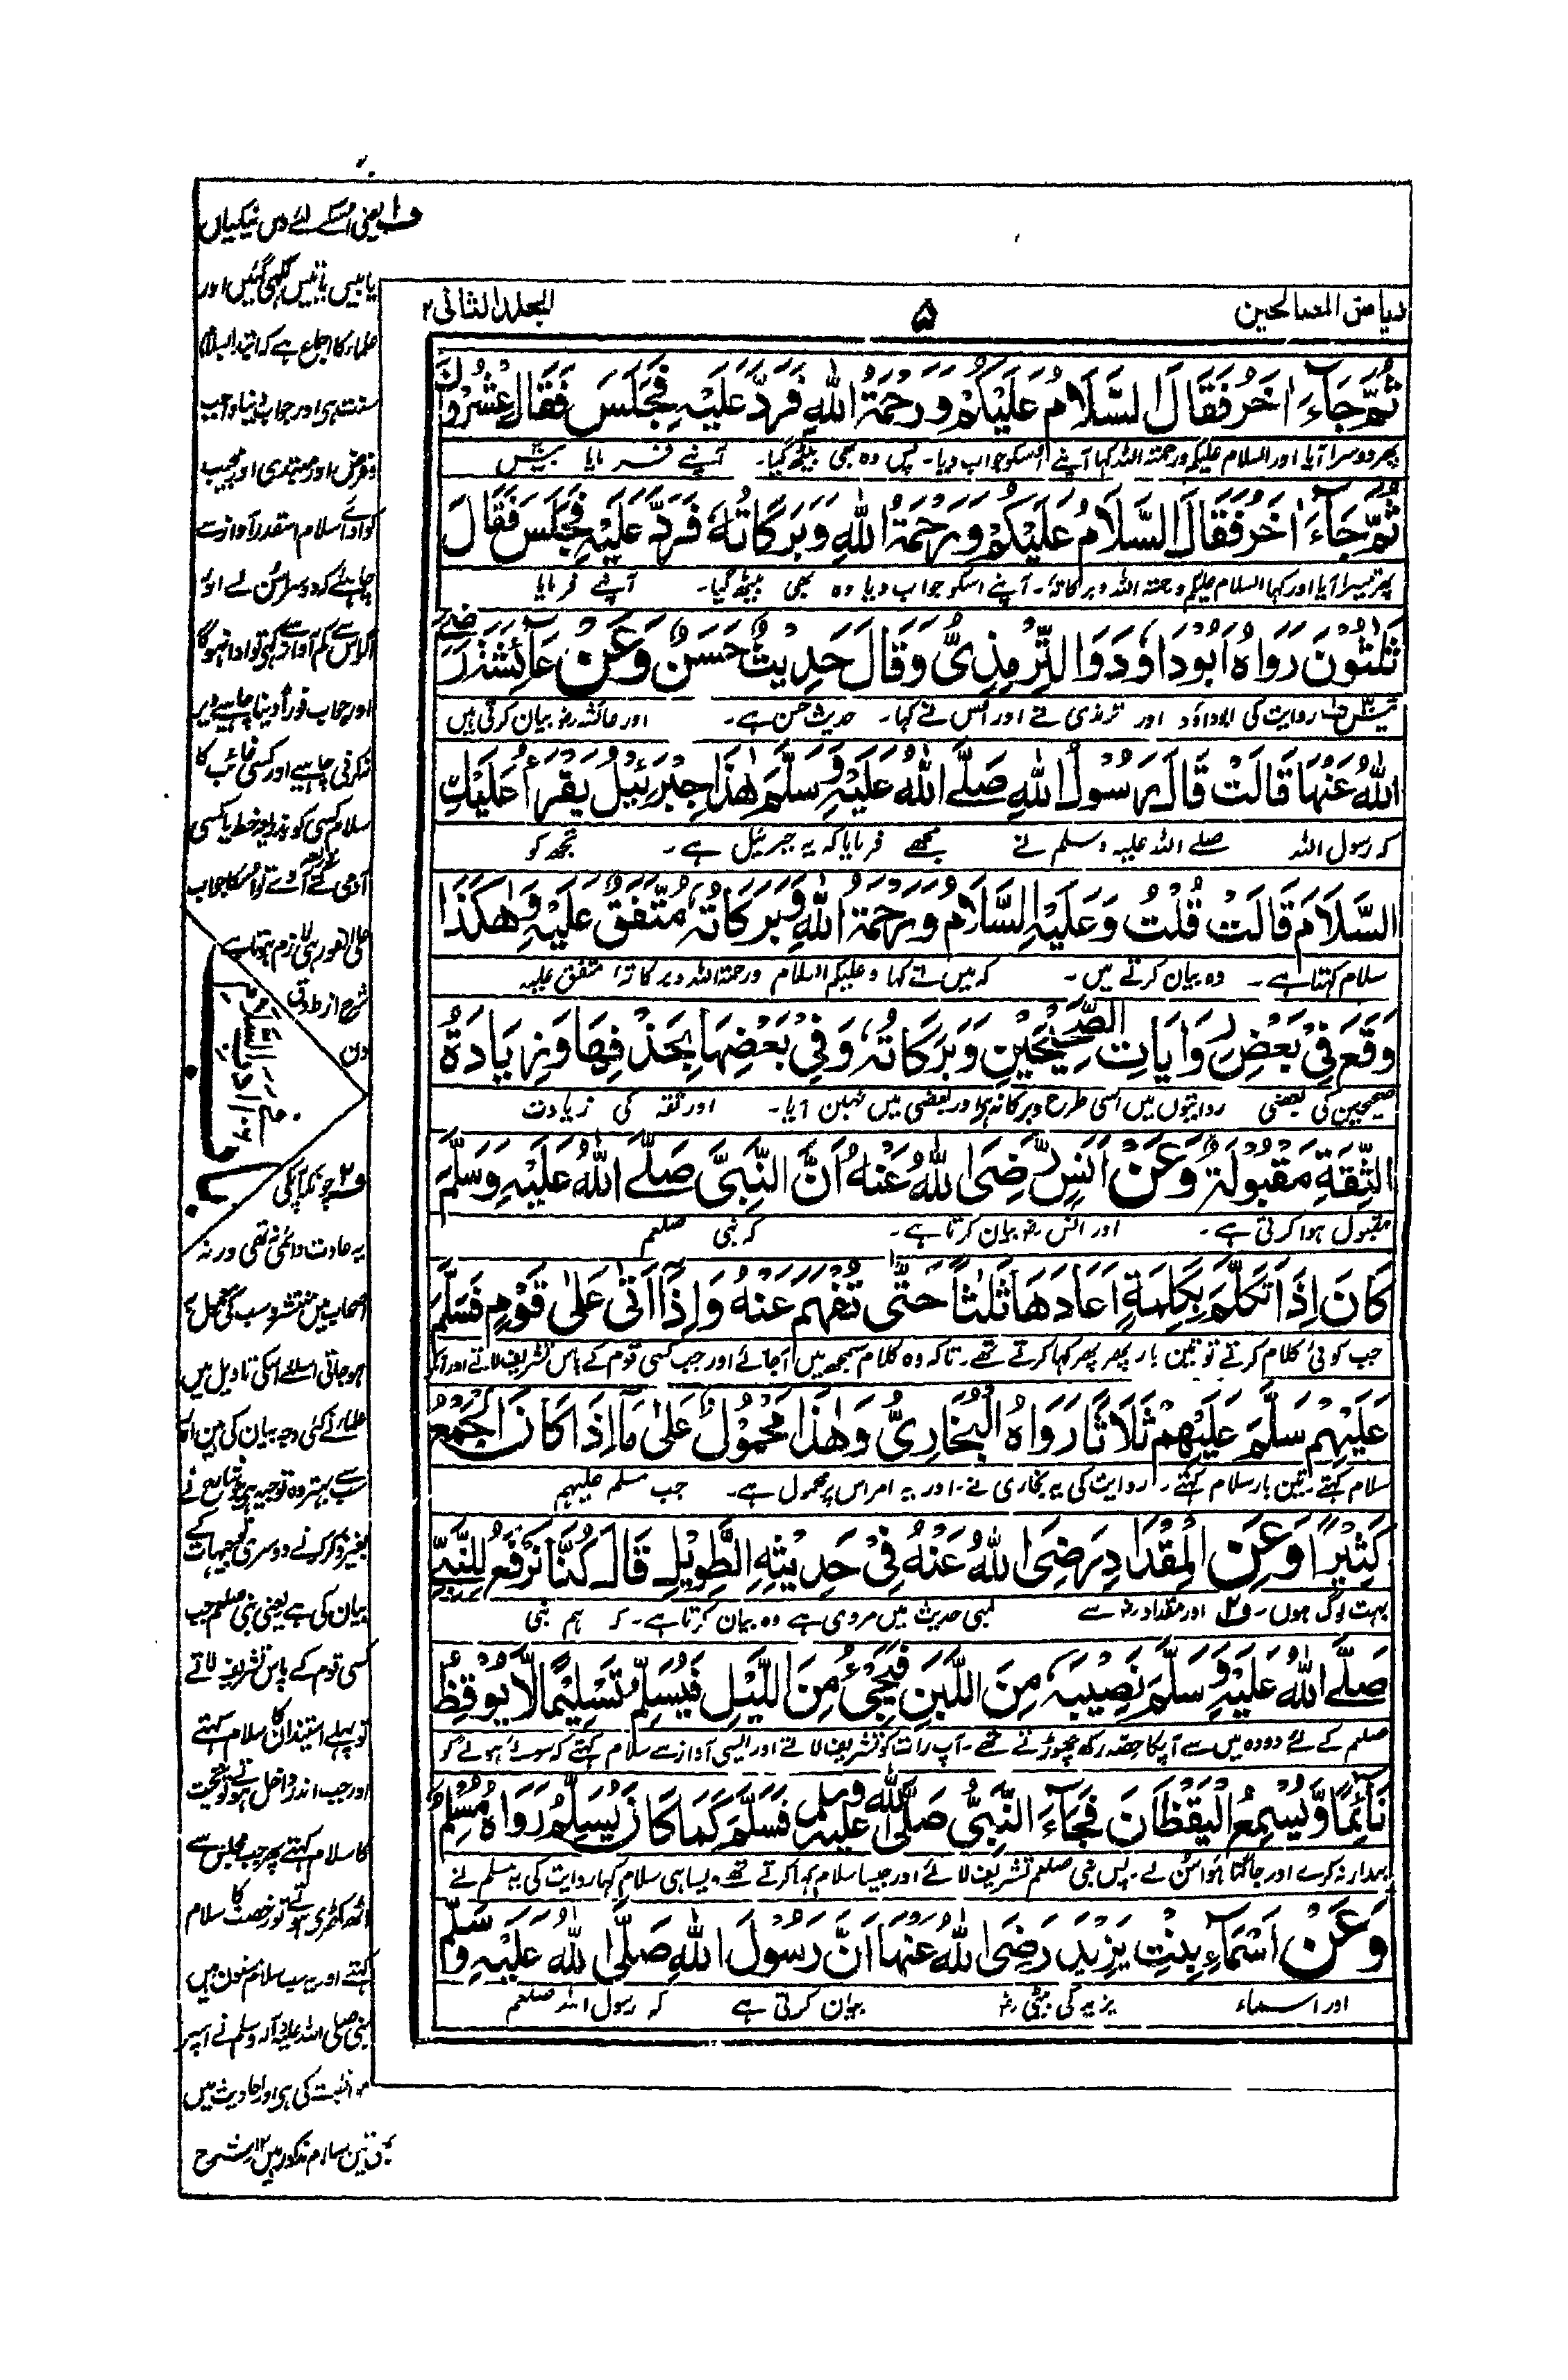 ریاض الصالحین
۵
المجلد الثانی ۲
ثُمَّ جَآءَ اٰخَرُ فَقَالَ السَّلَامُ عَلَیْکُمْ وَرَحْمَةُ اللّٰهِ فَرَدَّ عَلَیْهِ فَجَلَسَ فَقَالَ عِشْرُوْنَ
پھر دوسرا آیا اور السلام علیکم ورحمتہ اللہ کہا آپنے اسکو جواب دیا۔ پس وہ بھی بیٹھ گیا۔ آپنے فرمایا بیس
ثُمَّ جَآءَ اٰخَرُ فَقَالَ السَّلَامُ عَلَیْکُمْ وَرَحْمَةُ اللّٰهِ وَبَرَکَاتُهٗ فَرَدَّ عَلَیْهِ فَجَلَسَ فَقَالَ
پھر تیسرا آیا اور کہا السلام علیکم ورحمتہ اللہ وبرکاتہٗ۔ آپنے اسکو جواب دیا وہ بھی بیٹھ گیا۔ آپنے فرمایا
ثَلٰثُوْنَ رَوَاهُ اَبُوْدَاوٗدَ وَالتِّرْمِذِیُّ وَقَالَ حَدِیْثٌ حَسَنٌ وَعَنْ عَآئِشَةَ رَضِیَ
تیس ف۱ روایت کی ابوداؤد اور ترمذی نے اور اُس نے کہا۔ حدیث حسن ہے۔ اور عائشہ رضہ بیان کرتی ہیں
اللّٰهُ عَنْهَا قَالَتْ قَالَ رَسُوْلُ اللّٰهِ صَلَّے اللّٰهُ عَلَیْهِ وَسَلَّمَ هٰذَا جِبْرَئِیْلُ یَقْرَأُ عَلَیْكِ
کہ رسول اللہ صلے اللہ علیہ وسلم نے مجھے فرمایا کہ یہ جبرئیل ہے۔ تجھ کو
السَّلَامَ قَالَتْ قُلْتُ وَعَلَیْهِ السَّلَامُ وَرَحْمَةُ اللّٰهِ وَبَرَکَاتُهٗ مُتَّفَقٌ عَلَیْهِ وَهٰکَذَا
سلام کہتا ہے۔ وہ بیان کرتے ہیں۔ کہ میں نے کہا وعلیکم السلام ورحمتہ اللہ وبرکاتہٗ متفق علیہ
وَقَعَ فِیْ بَعْضِ رِوَایَاتِ الصَّحِیْحَیْنِ وَبَرَکَاتُهٗ وَفِیْ بَعْضِهَا بِحَذْفِهَا وَزِیَادَةُ
صحیحین کی بعضی روایتوں میں اسی طرح وبرکاتہ ہے اور بعضی میں نہیں آیا۔ اور ثقہ کی زیادت
الثِّقَةِ مَقْبُوْلَةٌ وَعَنْ اَنَسٍ رَضِیَ اللّٰهُ عَنْهُ اَنَّ النَّبِیَّ صَلَّے اللّٰهُ عَلَیْهِ وَسَلَّمَ
مقبول ہوا کرتی ہے۔ اور انس رضہ بیان کرتا ہے۔ کہ نبی صلعم
کَانَ اِذَا تَکَلَّمَ بِکَلِمَةٍ اَعَادَهَا ثَلٰثًا حَتّٰی تُفْهَمَ عَنْهُ وَاِذَآ اَتٰی عَلٰی قَوْمٍ فَسَلَّمَ
جب کوئی کلام کرتے تو تین بار پھر پھر کہا کرتے تھے۔ تاکہ وہ کلام سمجھ میں آجائے اور جب کسی قوم کے پاس تشریف لاتے اور انکو
عَلَیْهِمْ سَلَّمَ عَلَیْهِمْ ثَلَاثًا رَوَاهُ الْبُخَارِیُّ وَهٰذَا مَحْمُوْلٌ عَلٰی مَآ اِذَا کَانَ الْجَمْعُ
سلام کہتے۔ تین بار سلام کہتے۔ روایت کی یہ بخاری نے۔ اور یہ امر اس پر محمول ہے۔ جب مسلم علیہم
کَثِیْرًا وَعَنِ الْمِقْدَادِ رَضِیَ اللّٰهُ عَنْهُ فِیْ حَدِیْثِهِ الطَّوِیْلِ قَالَ کُنَّا نَرْفَعُ لِلنَّبِیِّ
بہت لوگ ہوں۔ ف۲ اور مقداد رضہ سے لمبی حدیث میں مروی ہے وہ بیان کرتا ہے۔ کہ ہم نبی
صَلَّے اللّٰهُ عَلَیْهِ وَسَلَّمَ نَصِیْبَهٗ مِنَ اللَّبَنِ فَیَجِیْءُ مِنَ اللَّیْلِ فَیُسَلِّمُ تَسْلِیْمًا لَّا یُوْقِظُ
صلعم کے لئے دودہ میں سے آپکا حصہ رکھ چھوڑتے تھے۔ آپ رات کو تشریف لاتے اور ایسی آواز سے سلام کہتے کہ سوئے ہوئے کو
نَآئِمًا وَّیُسْمِعُ الْیَقْظَانَ فَجَآءَ النَّبِیُّ صَلَّی اللّٰهُ عَلَیْهِ وَسَلَّمَ فَسَلَّمَ کَمَا کَانَ یُسَلِّمُ رَوَاهُ مُسْلِمٌ
بیدار نہ کرے اور جاگتا ہوا سُن لے۔ پس نبی صلعم تشریف لائے اور جیسا سلام کہا کرتے تھے ویسا ہی سلام کہا روایت کی یہ مسلم نے
وَعَنْ اَسْمَآءَ بِنْتِ یَزِیْدَ رَضِیَ اللّٰهُ عَنْهَا اَنَّ رَسُوْلَ اللّٰهِ صَلَّی اللّٰهُ عَلَیْهِ وَسَلَّمَ
اور اسماء یزید کی بیٹی رضہ بیان کرتی ہے کہ رسول اللہ صلعم
ف۱ یعنی اسکے لئے دس نیکیاں
یا بیس یا تیس لکھی گئیں اور
علماء کا اجماع ہے کہ ابتدا بسلام
سنت ہی اور جواب دینا واجب
و فرض اور مبتدی اور مجیب
کو ادائے سلام اسقدر آواز سے
چاہئے کہ دوسرا سُن لے اور
اگر اس سے کم آواز سے کہی تو ادا نہوگا
اور جواب فوراً دینا چاہیے دیر
نہ کرنی چاہیے اور کسی غائب کا
سلام کسی کو بذریعہ خط یا کسی
آدمی کے آوے تو اُسکا جواب
علی الفور ہی لازم ہوتا ہے
شرح از طرقی
ف۲ چونکہ آپکی
یہ عادت دائمی نہ تھی ورنہ
اصحاب میں منتشر و سب کی
ہو جاتی اسلئے اسکی تاویل میں
علماء نے کئی وجہ بیان کی ہیں
سب سے بہتر وہ توجیہ ہی جو شارع نے
بغیر ذکر کرنے دوسری توجیہات کے
بیان کی ہے یعنی نبی صلعم جب
کسی قوم کے پاس تشریف لاتے
تو پہلے استیذان کا سلام کہتے
اور جب اندر داخل ہوتے تو تحیت
کا سلام کہتے پھر جب مجلس سے
اٹھ کھڑی ہوتے تو رخصت کا سلام
کہتے اور یہ سب سلام مسنون ہیں
نبی صلی اللہ علیہ وآلہ وسلم نے اسپر
مواظبت کی ہی اور احادیث میں
یہی تین سلام مذکور ہیں ۱۲ شرح